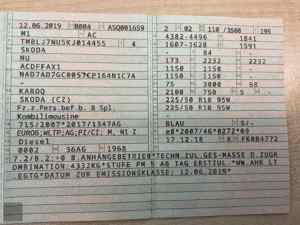 12.06.2019 8004 ASQ001659
M1 AC
TMBLJ7NU5KJ014455 4
SKODA
NU
ACDFFAX1
NAD7AD7GC0057CP164N1C7A
-
KAROQ
SKODA (CZ)
Fz.z.Pers.bef.b. 8 Spl.
Kombilimousine
715/2007*2017/1347AG
EURO6;WLTP;AG;PI/CI; M, N1 I
Diesel
0002 36AG 1968
2 02 110 /3500 195
4382-4496 1841
1607-1628 1591
- 84 -
173 2232 2232
1150 1150 -
1150 1150 -
75 3000 68
2100 750 5 -
225/50 R18 95W
225/50 R18 95W
-
BLAU 5/-
e8*2007/46*0272*09
17.12.18 K
7.2/8.2:+0 B.ANHÄNGEBETRIEB*TECHN.ZUL.GES-MASSE D.ZUGK
OMBINATION:4332KG*STUFE PM 5 AB TAG ERSTZUL.*WW.AHK LT
.EGTG*DATUM ZUR EMISSIONSKLASSE: 12.06.2019*